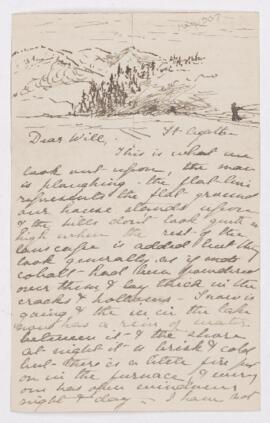 Dear Will,
This is what we
look out upon, the man
is ploughing - the flat line
represents the flat ground
our house stands upon
& the hills don't look quite so
high when the rest of the
landscape is added but they
look generally as if
cobalt had been powdered
over them & lay thick in the
cracks & hollows - Snow is
going & the ice in the lake
now has a rim of water
between it & the shore
at night it is brisk & cold
but there is a little fire put
on in the furnace & every
one has open windows
night & day - I have not